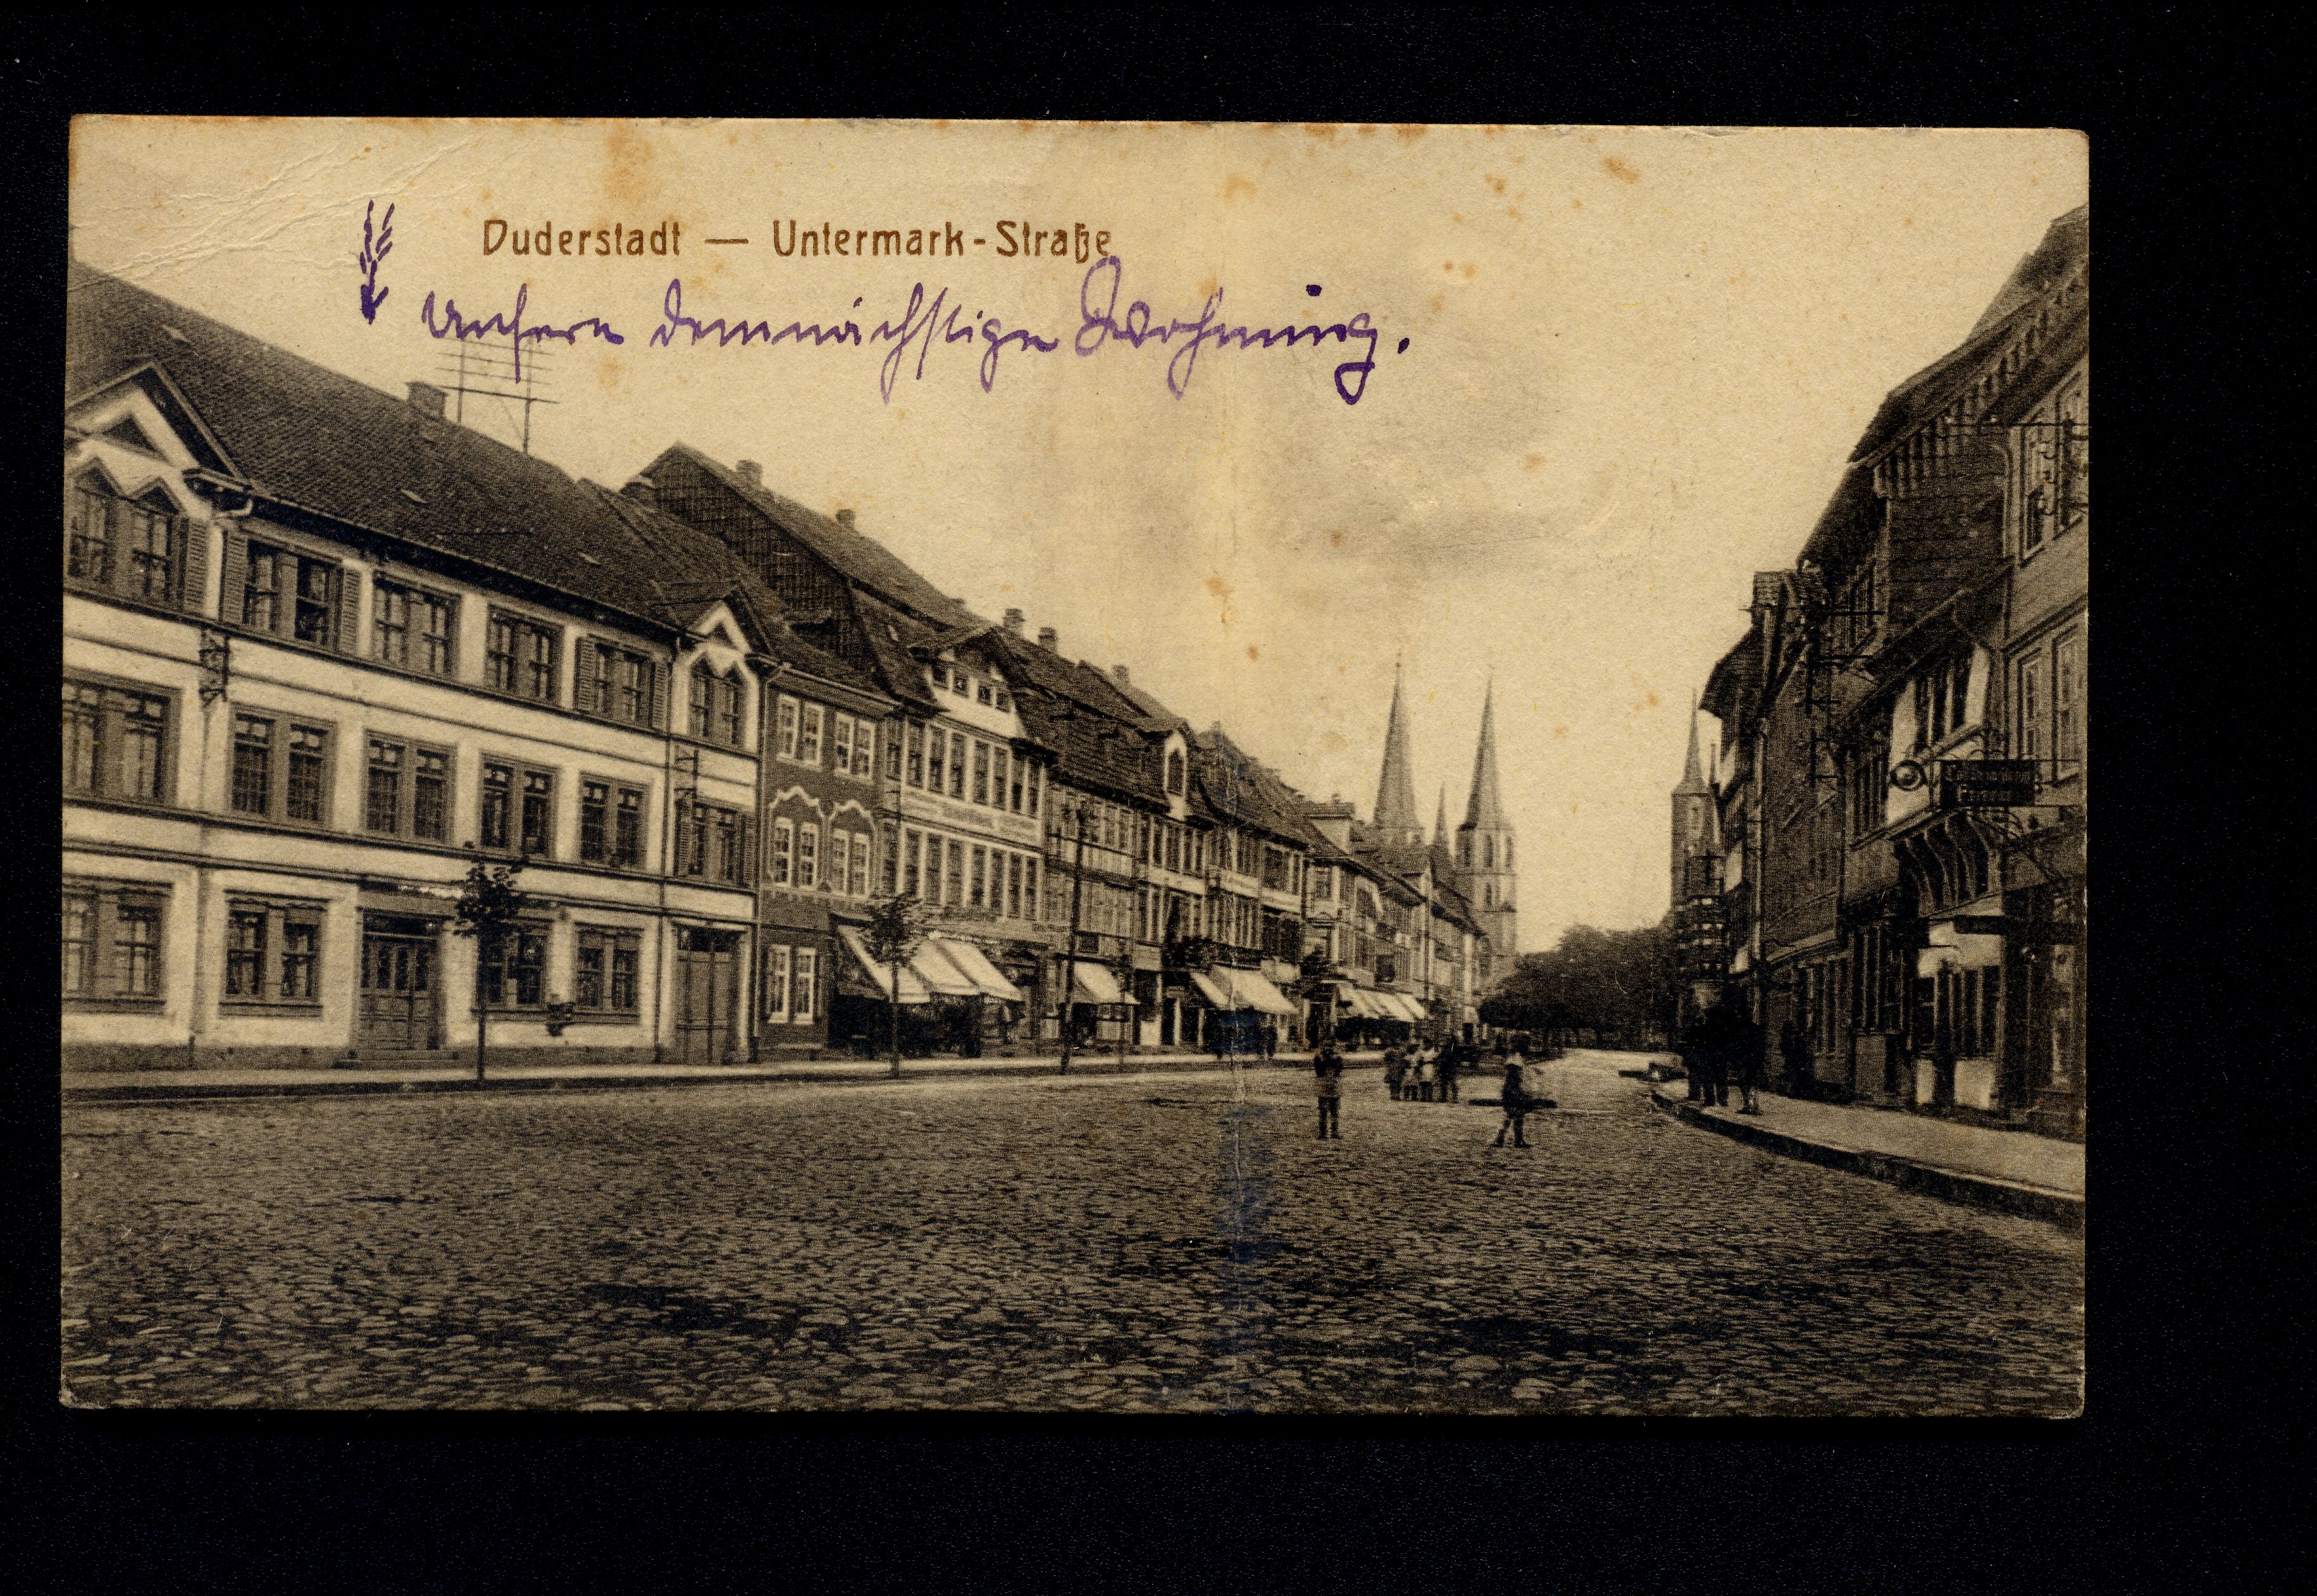 Duderstadt — Untermark-Straße
Unsere demnächstige Wohnung.